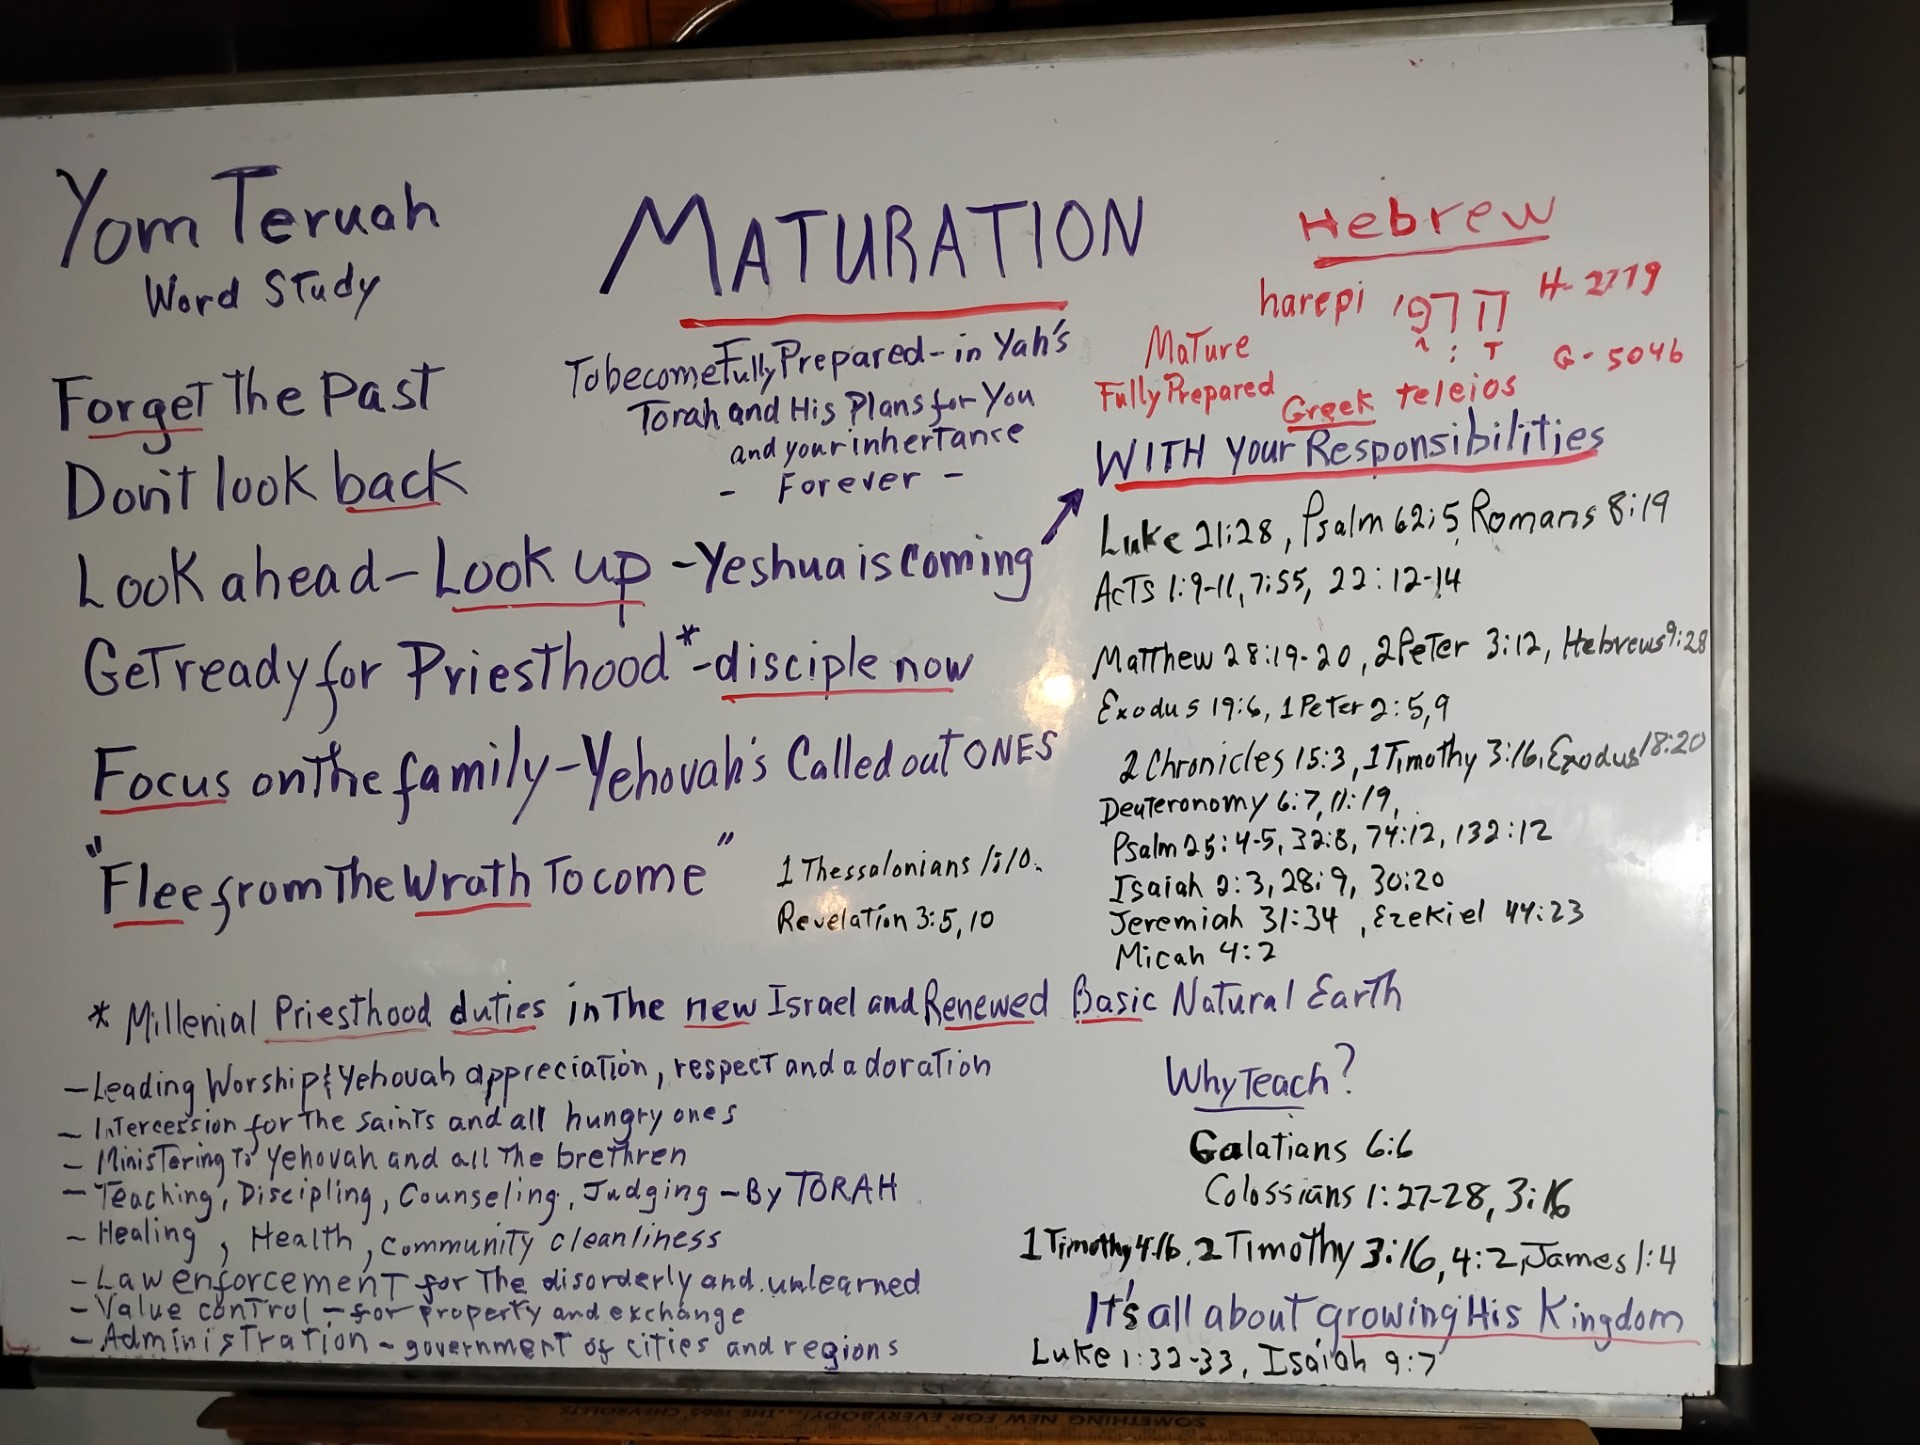 Yom Teruah
Word Study
MATURATION
To become Fully Prepared - in Yah's
Torah and His Plans for You
and your inhertance
- Forever -
Hebrew
harepi חָרְפִּי H-2779
Mature
Fully Prepared
Greek teleios G-5046
WITH Your Responsibilities
Forget the Past
Don't look back
Look ahead - Look up - Yeshua is coming
Get ready for Priesthood* - disciple now
Focus on the family - Yehovah's Called out ONES
"Flee from The Wrath To come"
1 Thessalonians 1:10.
Revelation 3:5,10
Luke 21:28, Psalm 62:5, Romans 8:19
Acts 1:9-11, 7:55, 22:12-14
Matthew 28:19-20, 2 Peter 3:12, Hebrews 9:28
Exodus 19:6, 1 Peter 2:5,9
2 Chronicles 15:3, 1 Timothy 3:16, Exodus 18:20
Deuteronomy 6:7, 11:19,
Psalm 25:4-5, 32:8, 74:12, 132:12
Isaiah 2:3, 28:9, 30:20
Jeremiah 31:34, Ezekiel 44:23
Micah 4:2
* Millenial Priesthood duties in The new Israel and Renewed Basic Natural Earth
- Leading Worship & Yehovah appreciation, respect and adoration
- Intercession for the Saints and all hungry ones
- Ministering To Yehovah and all The brethren
- Teaching, Discipling, Counseling, Judging - By TORAH
- Healing, Health, community cleanliness
- Law enforcement for The disorderly and unlearned
- Value control - for property and exchange
- Administration - government of cities and regions
Why Teach?
Galatians 6:6
Colossians 1:27-28, 3:16
1 Timothy 4:16, 2 Timothy 3:16, 4:2, James 1:4
It's all about growing His Kingdom
Luke 1:32-33, Isaiah 9:7
SOMETHING NEW FOR EVERYBODY!...THE 1962 CHEVROLETS